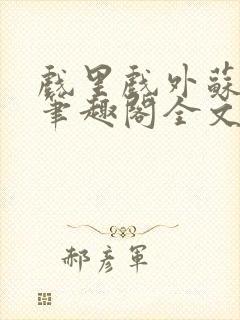 戲里戲外蘇
筆趣閣全文
郝彥軍